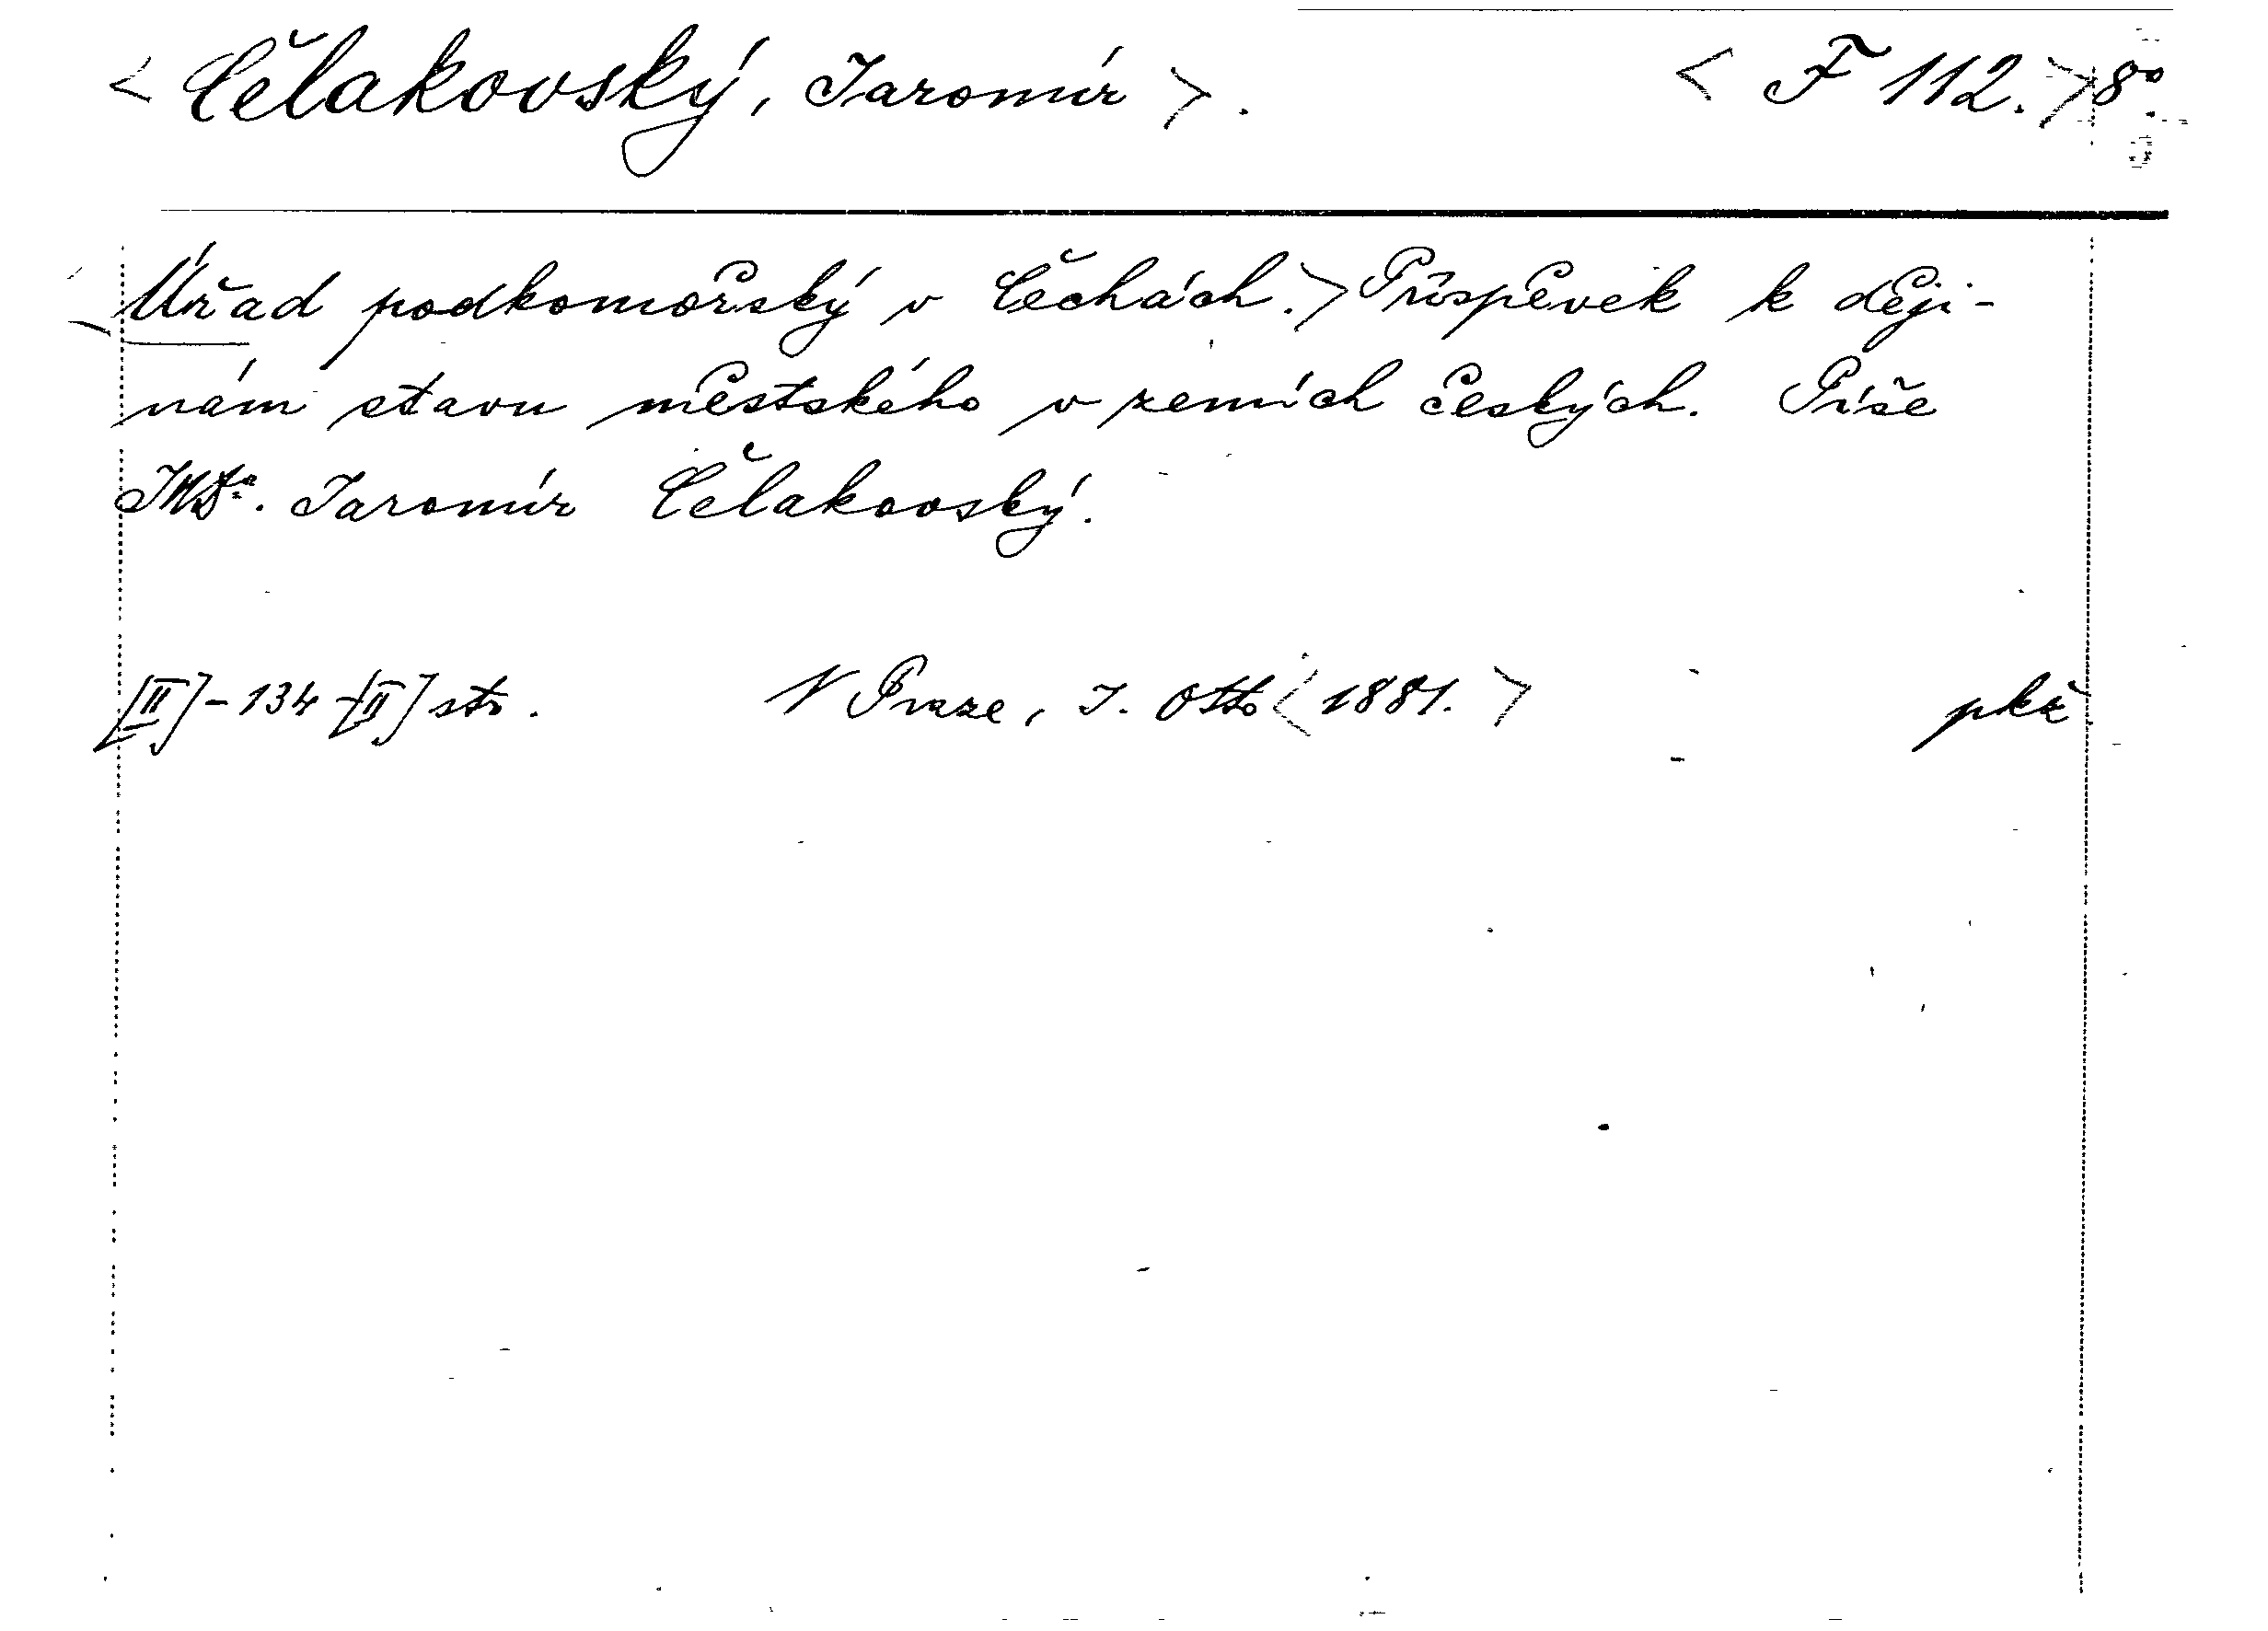 < Čelakovský, Jaromír >. < F 112. > 8°.
< Úřad podkomořský v Čechách. > Příspěvek k ději-
nám stavu městského v zemích českých. Píše
JUDr. Jaromír Čelakovský.
[II] - 134 - [II] str. V Praze, J. Otto < 1881. > pkž